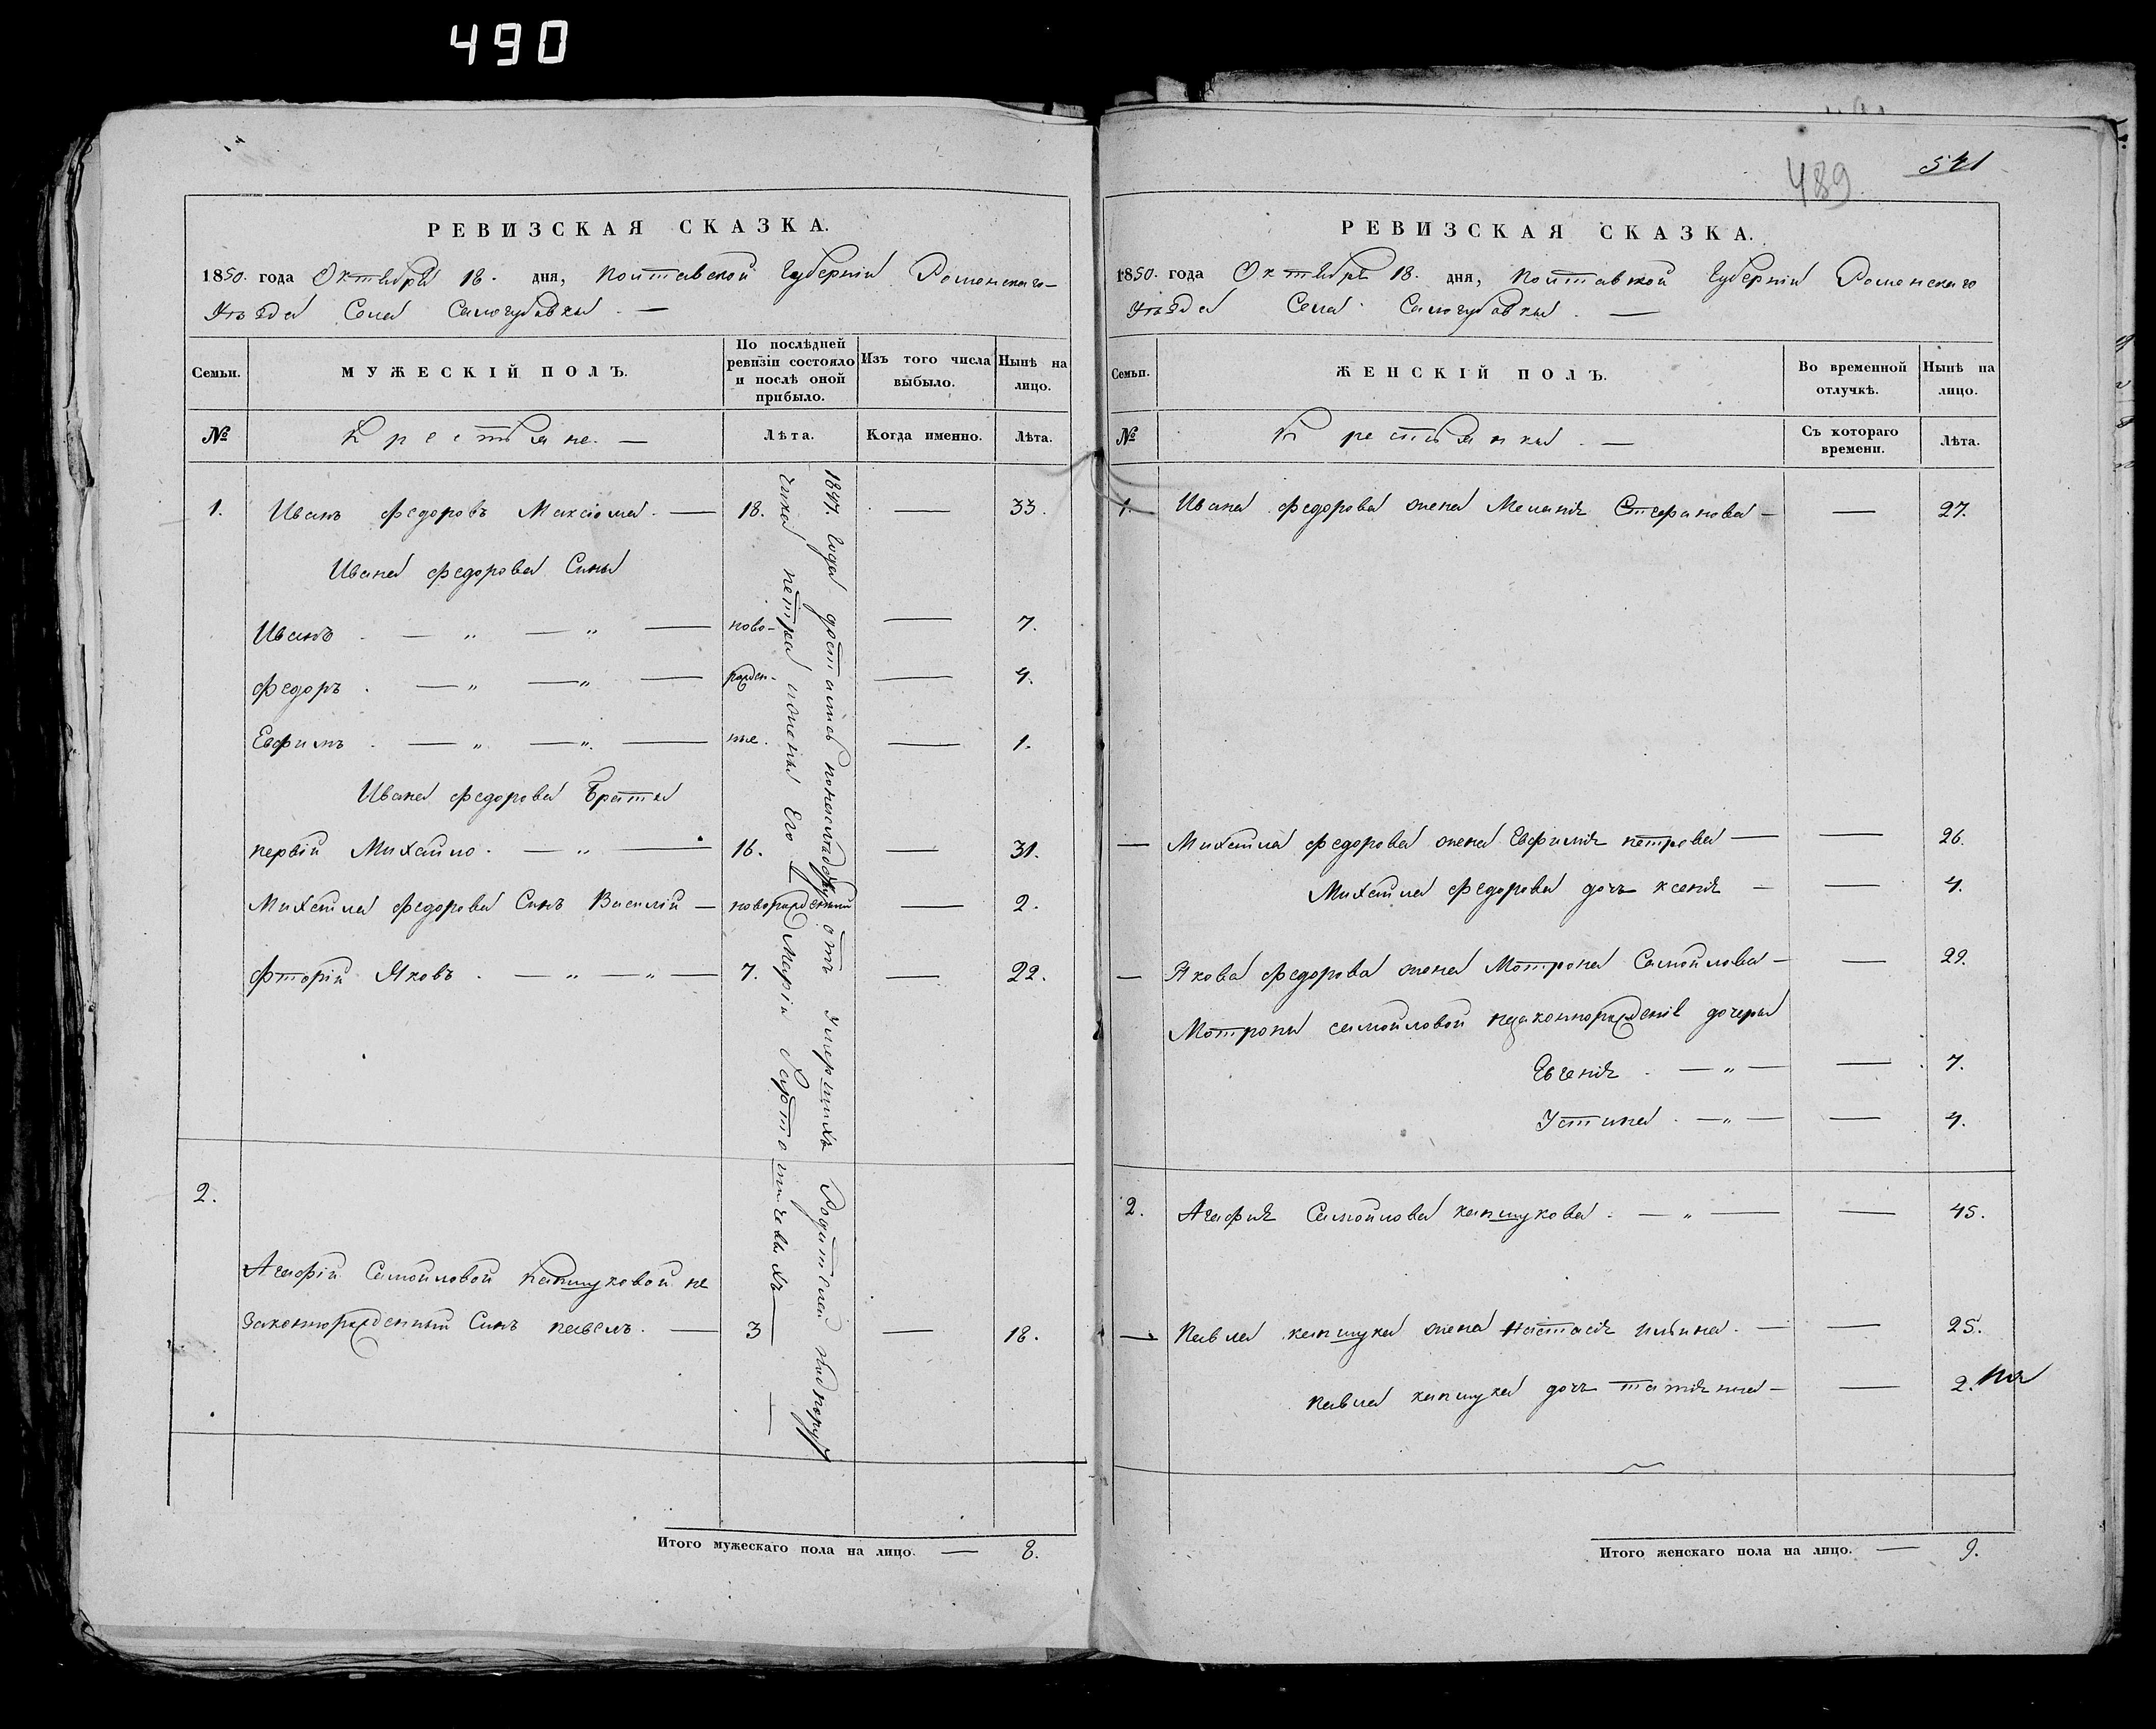 490
РЕВИЗСКАЯ СКАЗКА.
1850. года Октября 18. дня, Полтавской Губерніи Роменскаго
Уѣзда Села Самогубовки. —
Семьи.
МУЖЕСКІЙ ПОЛЪ.
По послѣдней ревизіи состояло и послѣ оной прибыло.
Изъ того числа выбыло.
Нынѣ на лицо.
№
Крестьяне. —
Лѣта.
Когда именно.
Лѣта.
1. Иванъ Федоровъ Максіома. — 18. — 33.
Ивана Федорова Сины
Иванъ . — „ — „ — ново- — 7.
Федоръ . — „ — „ — рожден- — 4.
Евфимъ . — „ — „ — ные. — 1.
Ивана Федорова Браты
первій Михайло. — „ — 16. — 31.
Михайла Федорова Синъ Василій — новорожденный — 2.
фторій Яковъ . — „ — „ — 7. — 22.
2.
Агафіи Самойловой Капшуковой не
законнорожденный Синъ павелъ. — 3 — 18.
1847. Года достались по отъ умершихъ Родителей подпоруч
чика петра и жены Его Маріи —
Итого мужескаго пола на лицо. — 8.
489
541
РЕВИЗСКАЯ СКАЗКА.
1850. года Октября 18. дня, Полтавской Губерніи Роменскаго
Уѣзда Села Самогубовки. —
Семьи.
ЖЕНСКІЙ ПОЛЪ.
Во временной отлучкѣ.
Нынѣ на лицо.
№
Крестьянки. —
Съ котораго времени.
Лѣта.
1. Ивана Федорова жена Меланія Стефанова — — 27.
— Михайла Федорова жена Евфимія петрова — — 26.
Михайла Федорова дочь ксенія — — 4.
— Якова Федорова жена Мотрона Самойлова — — 29.
Мотроны самойловой незаконнорожденіе дочеры
Евгенія . — „ — — 7.
Устина . — „ — — 4.
2. Агафія Самойлова капшукова . — „ — — 45.
— Павла капшука жена Настасія ильина. — — 25.
павла капшука дочь татіяна — — 2.
Итого женскаго пола на лицо. — 9.